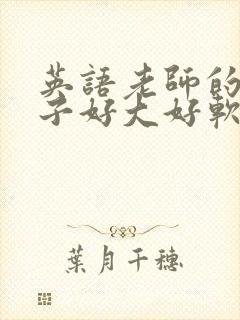 英語老師的
子好大好軟
葉月千穗